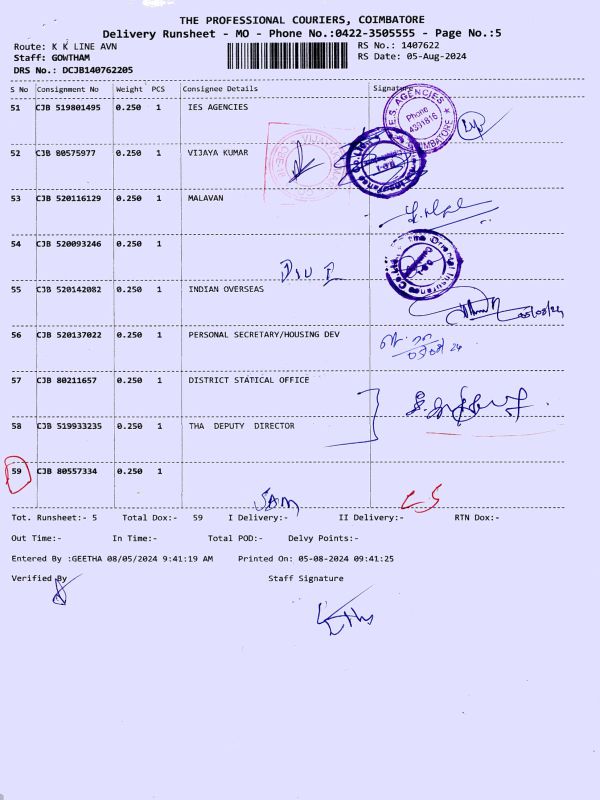 THE PROFESSIONAL COURIERS, COIMBATORE
Delivery Runsheet - MO - Phone No.:0422-3505555 - Page No.:5
Route: K K LINE AVN RS No.: 1407622
Staff: GOWTHAM RS Date: 05-Aug-2024
DRS No.: DCJB140762205
S No Consignment No Weight PCS Consignee Details Signature
51 CJB 519801495 0.250 1 IES AGENCIES
E.S. AGENCIES Phone 4391816 COIMBATORE
52 CJB 80575977 0.250 1 VIJAYA KUMAR
53 CJB 520116129 0.250 1 MALAVAN
54 CJB 520093246 0.250 1
The Oriental Insurance Co. Ltd.
55 CJB 520142082 0.250 1 INDIAN OVERSEAS
05/08/24
56 CJB 520137022 0.250 1 PERSONAL SECRETARY/HOUSING DEV
05/08/24
57 CJB 80211657 0.250 1 DISTRICT STATICAL OFFICE
58 CJB 519933235 0.250 1 THA DEPUTY DIRECTOR
59 CJB 80557334 0.250 1
SAM
Tot. Runsheet:- 5 Total Dox:- 59 I Delivery:- II Delivery:- RTN Dox:-
Out Time:- In Time:- Total POD:- Delvy Points:-
Entered By :GEETHA 08/05/2024 9:41:19 AM Printed On: 05-08-2024 09:41:25
Verified By Staff Signature